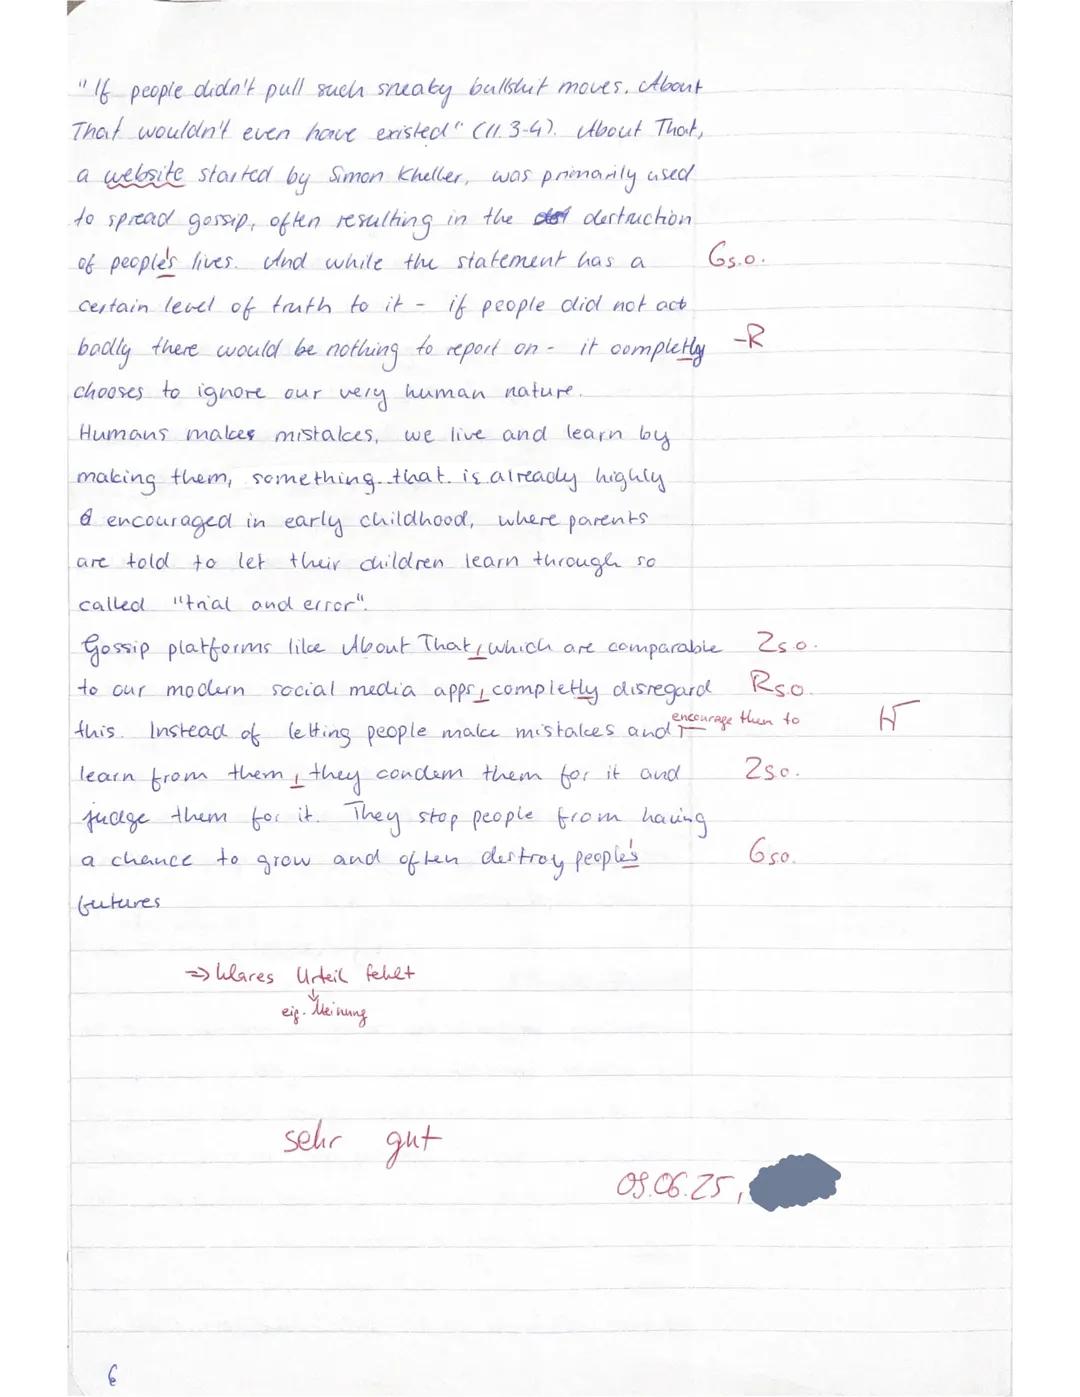 "If people didn't pull such sneaky bullshit moves, About
That wouldn't even have existed" (ll. 3-4). About That,
a website started by Simon Kheller, was primarily used
to spread gossip, often resulting in the destruction
of people's lives. And while the statement has a Gs.o.
certain level of truth to it - if people did not act
badly there would be nothing to report on - it completly -R
chooses to ignore our very human nature.
Humans makes mistakes, we live and learn by
making them, something that is already highly
encouraged in early childhood, where parents
are told to let their children learn through so
called "trial and error".
Gossip platforms like About That, which are comparable Zs.o.
to our modern social media apps, completly disregard Rs.o.
this. Instead of letting people make mistakes and encourage them to
learn from them, they condem them for it and Zso.
judge them for it. They stop people from having
a chance to grow and often destroy people's Gso.
futures
=> klares Urteil fehlt
eig. Meinung
sehr gut
09.06.25,
6